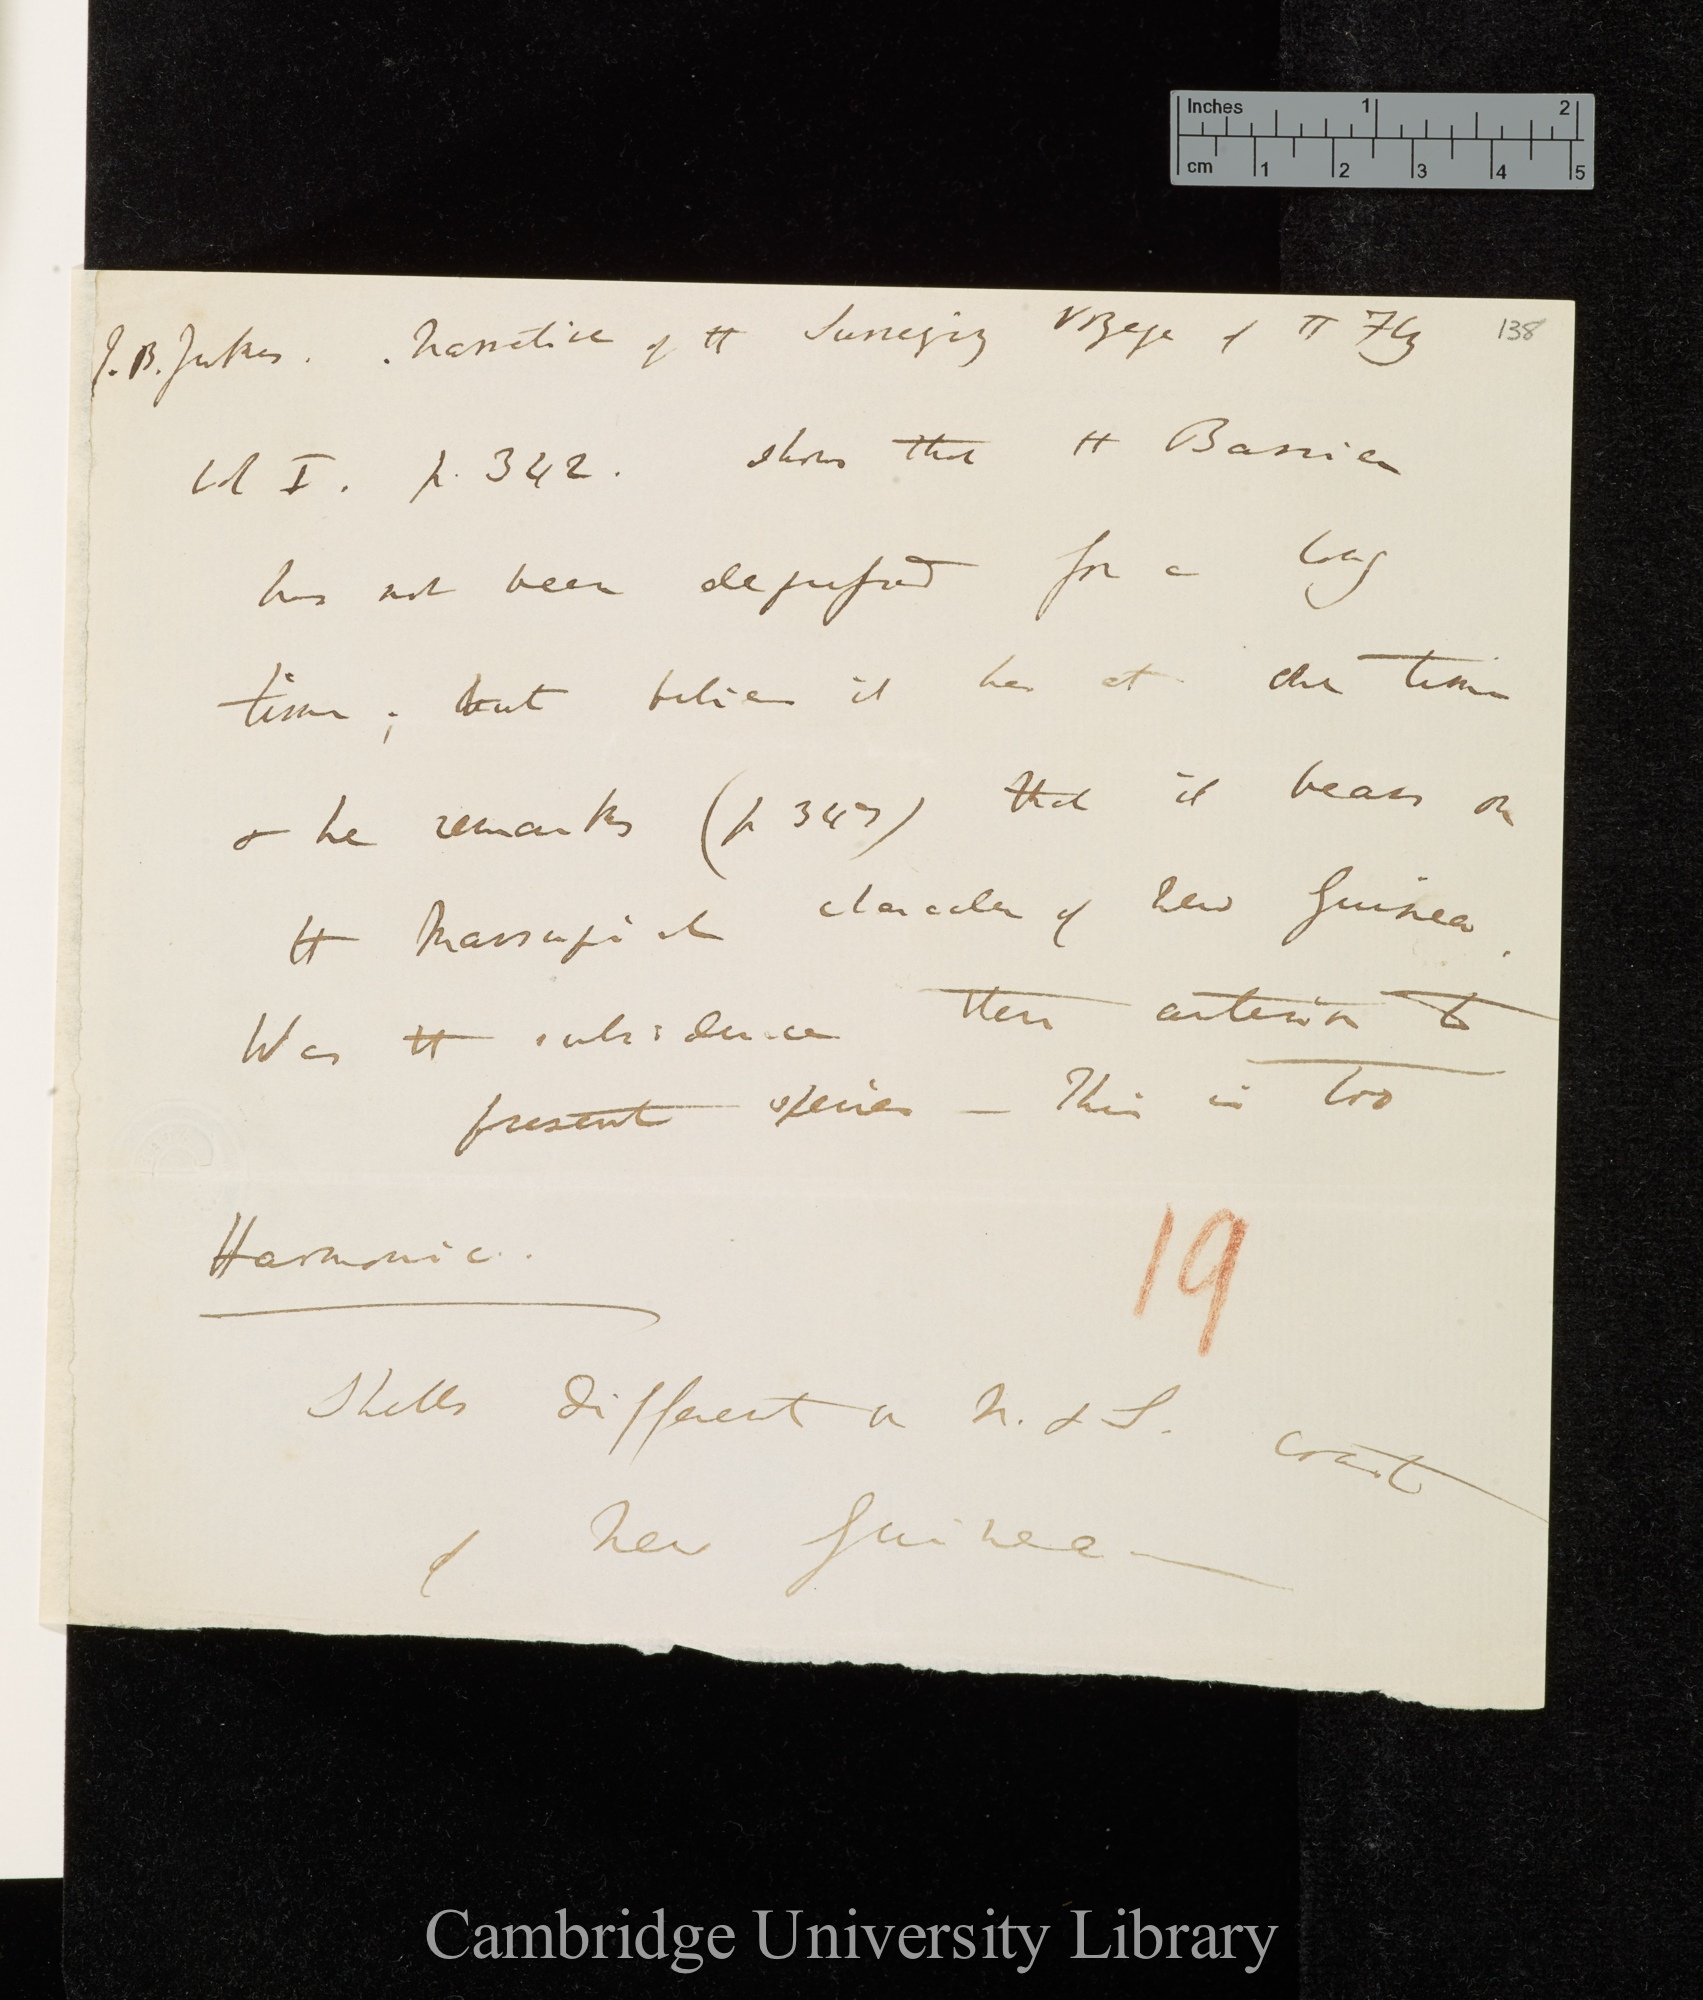 Inches 1 2
cm 1 2 3 4 5
J. B. Jukes. Narrative of the Surveying Voyage of the Fly 138
Vol I. p. 342. shows that the Barrier
has not been depressed for a long
time; but believes it has at one time
& he remarks (p 347) that it bears on
the Marsupial character of New Guinea.
Was the subsidence then anterior to
present species — This is too
Harmonic.
19
Shells different on N. & S. coast
of New Guinea —
Cambridge University Library